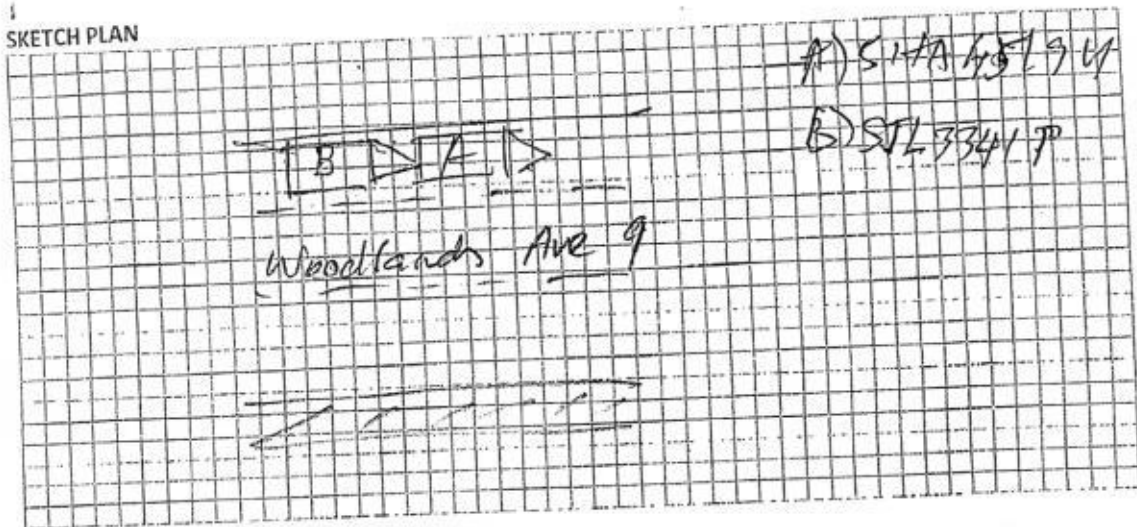 SKETCH PLAN
A) SHA 4519 U
B) SJL 3341 P
B A
Woodlands Ave 9